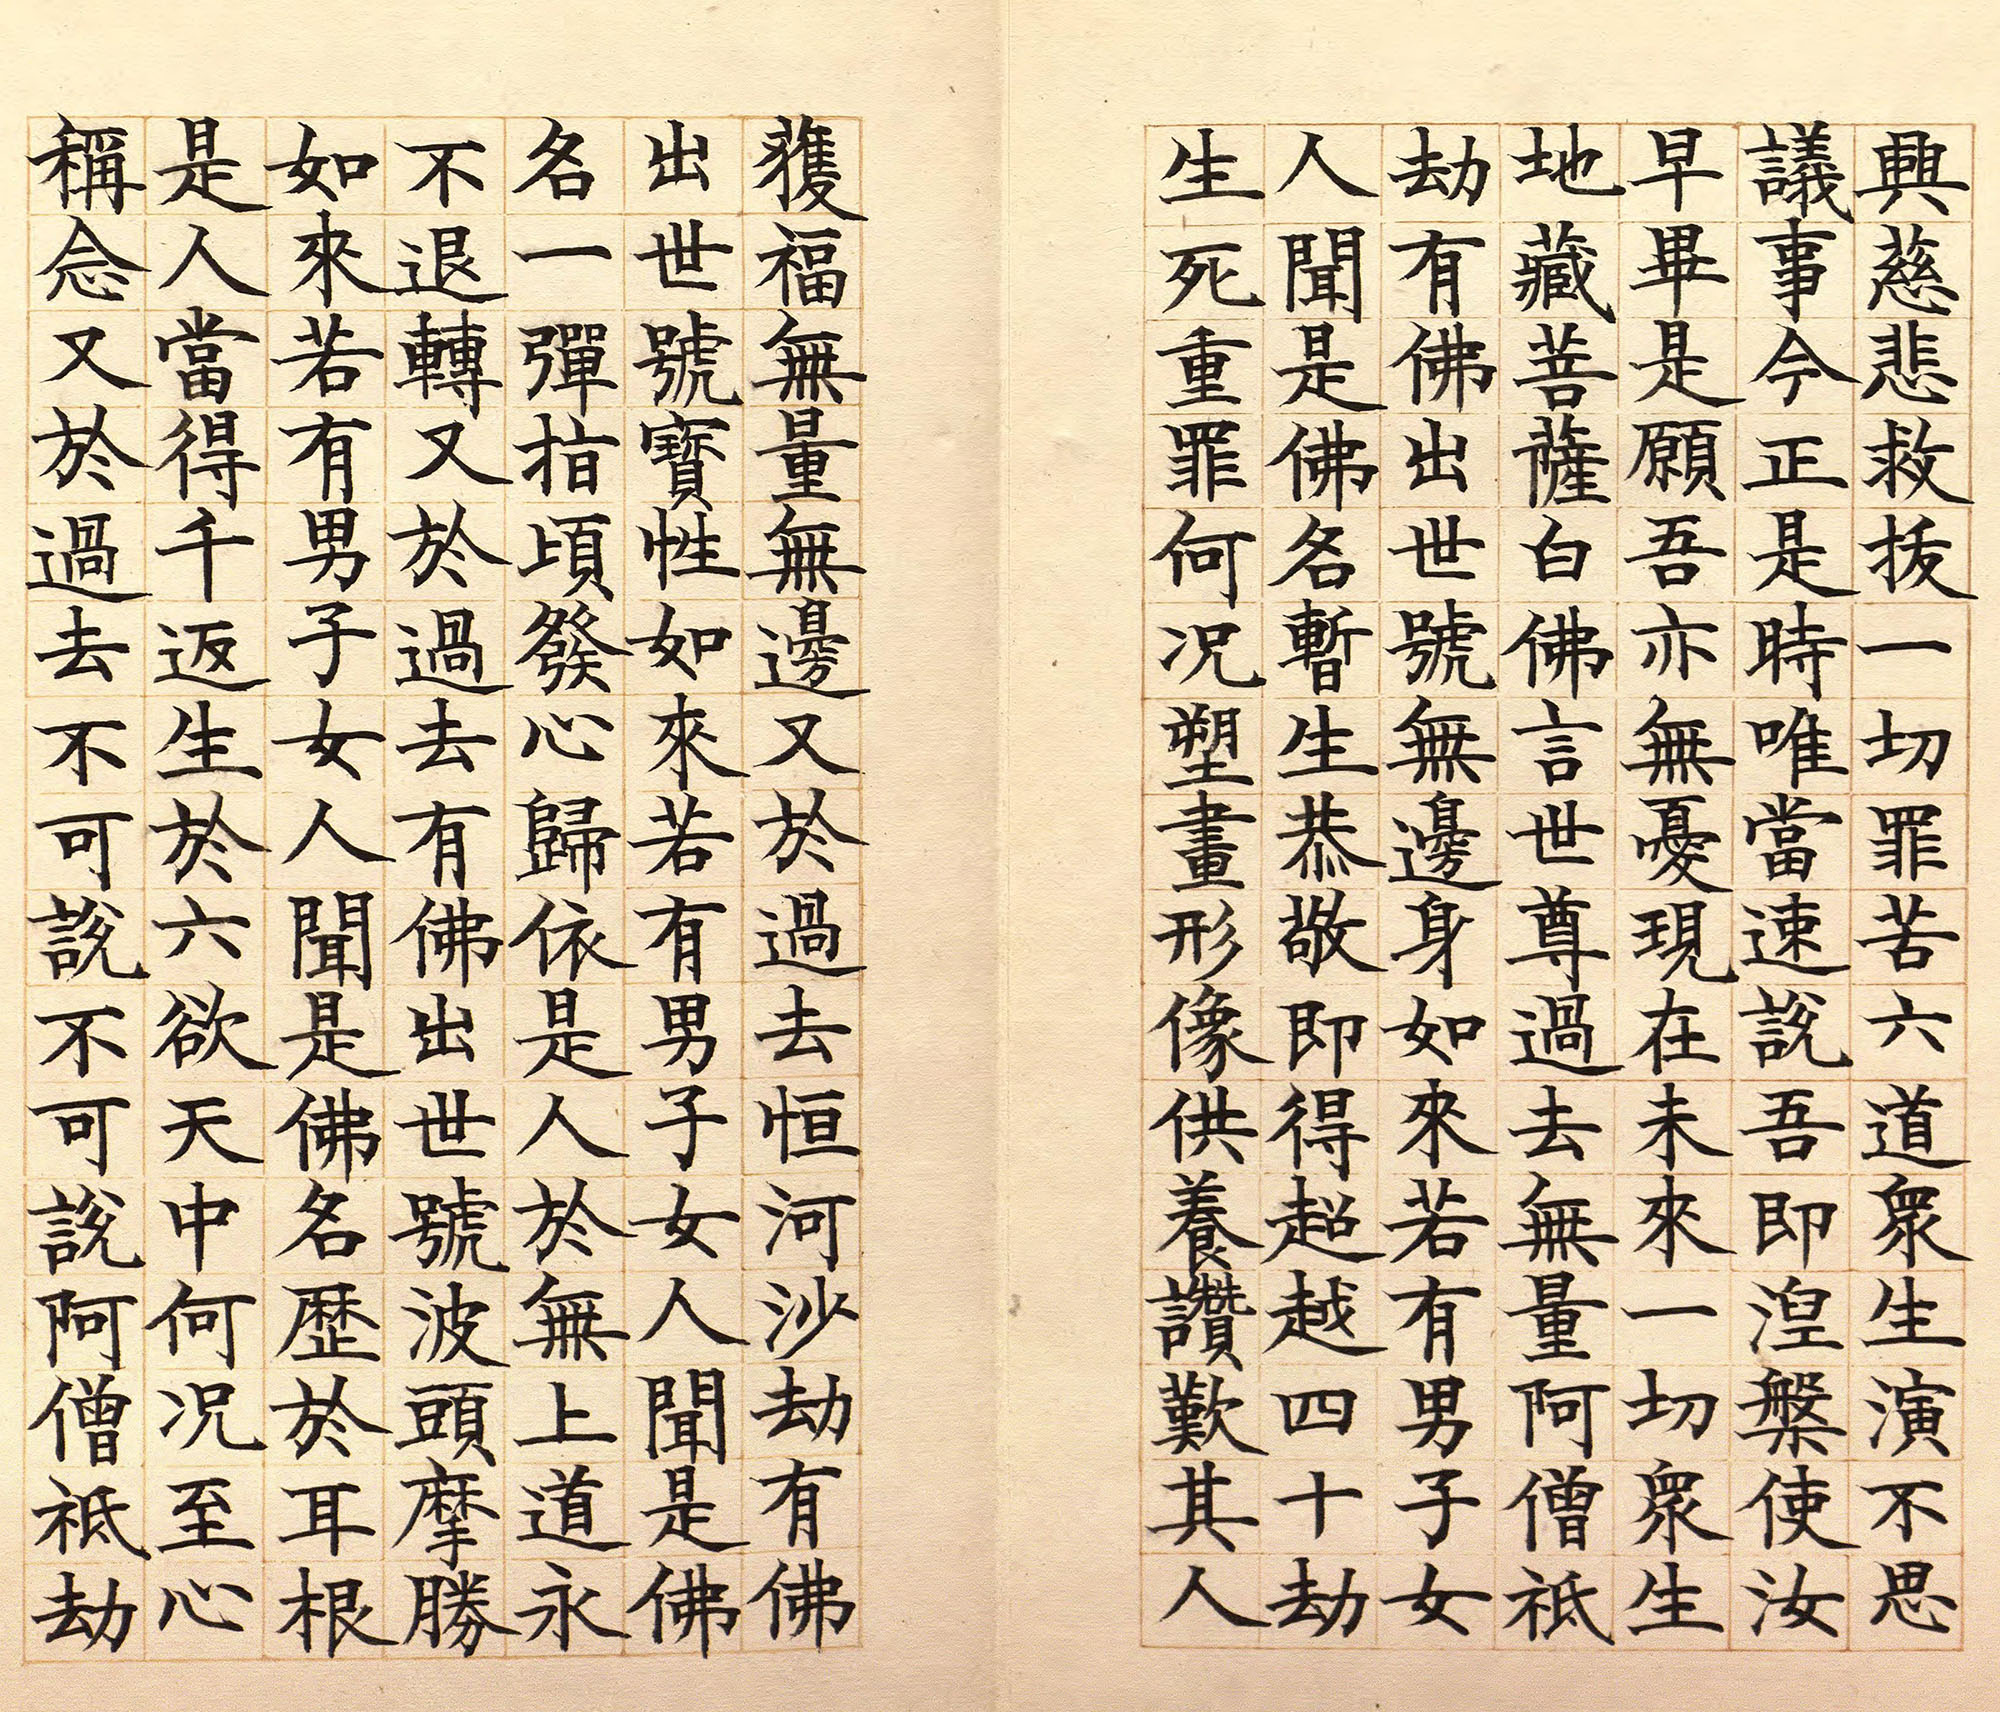 興慈悲救拔一切罪苦六道衆生演不思
議事今正是時唯當速說吾即涅槃使汝
早畢是願吾亦無憂現在未來一切衆生
地藏菩薩白佛言世尊過去無量阿僧祇
劫有佛出世號無邊身如來若有男子女
人聞是佛名暫生恭敬即得超越四十劫
生死重罪何况塑畫形像供養讚歎其人
獲福無量無邊又於過去恒河沙劫有佛
出世號寶性如來若有男子女人聞是佛
名一彈指頃發心歸依是人於無上道永
不退轉又於過去有佛出世號波頭摩勝
如來若有男子女人聞是佛名歷於耳根
是人當得千返生於六欲天中何况至心
稱念又於過去不可說不可說阿僧祇劫